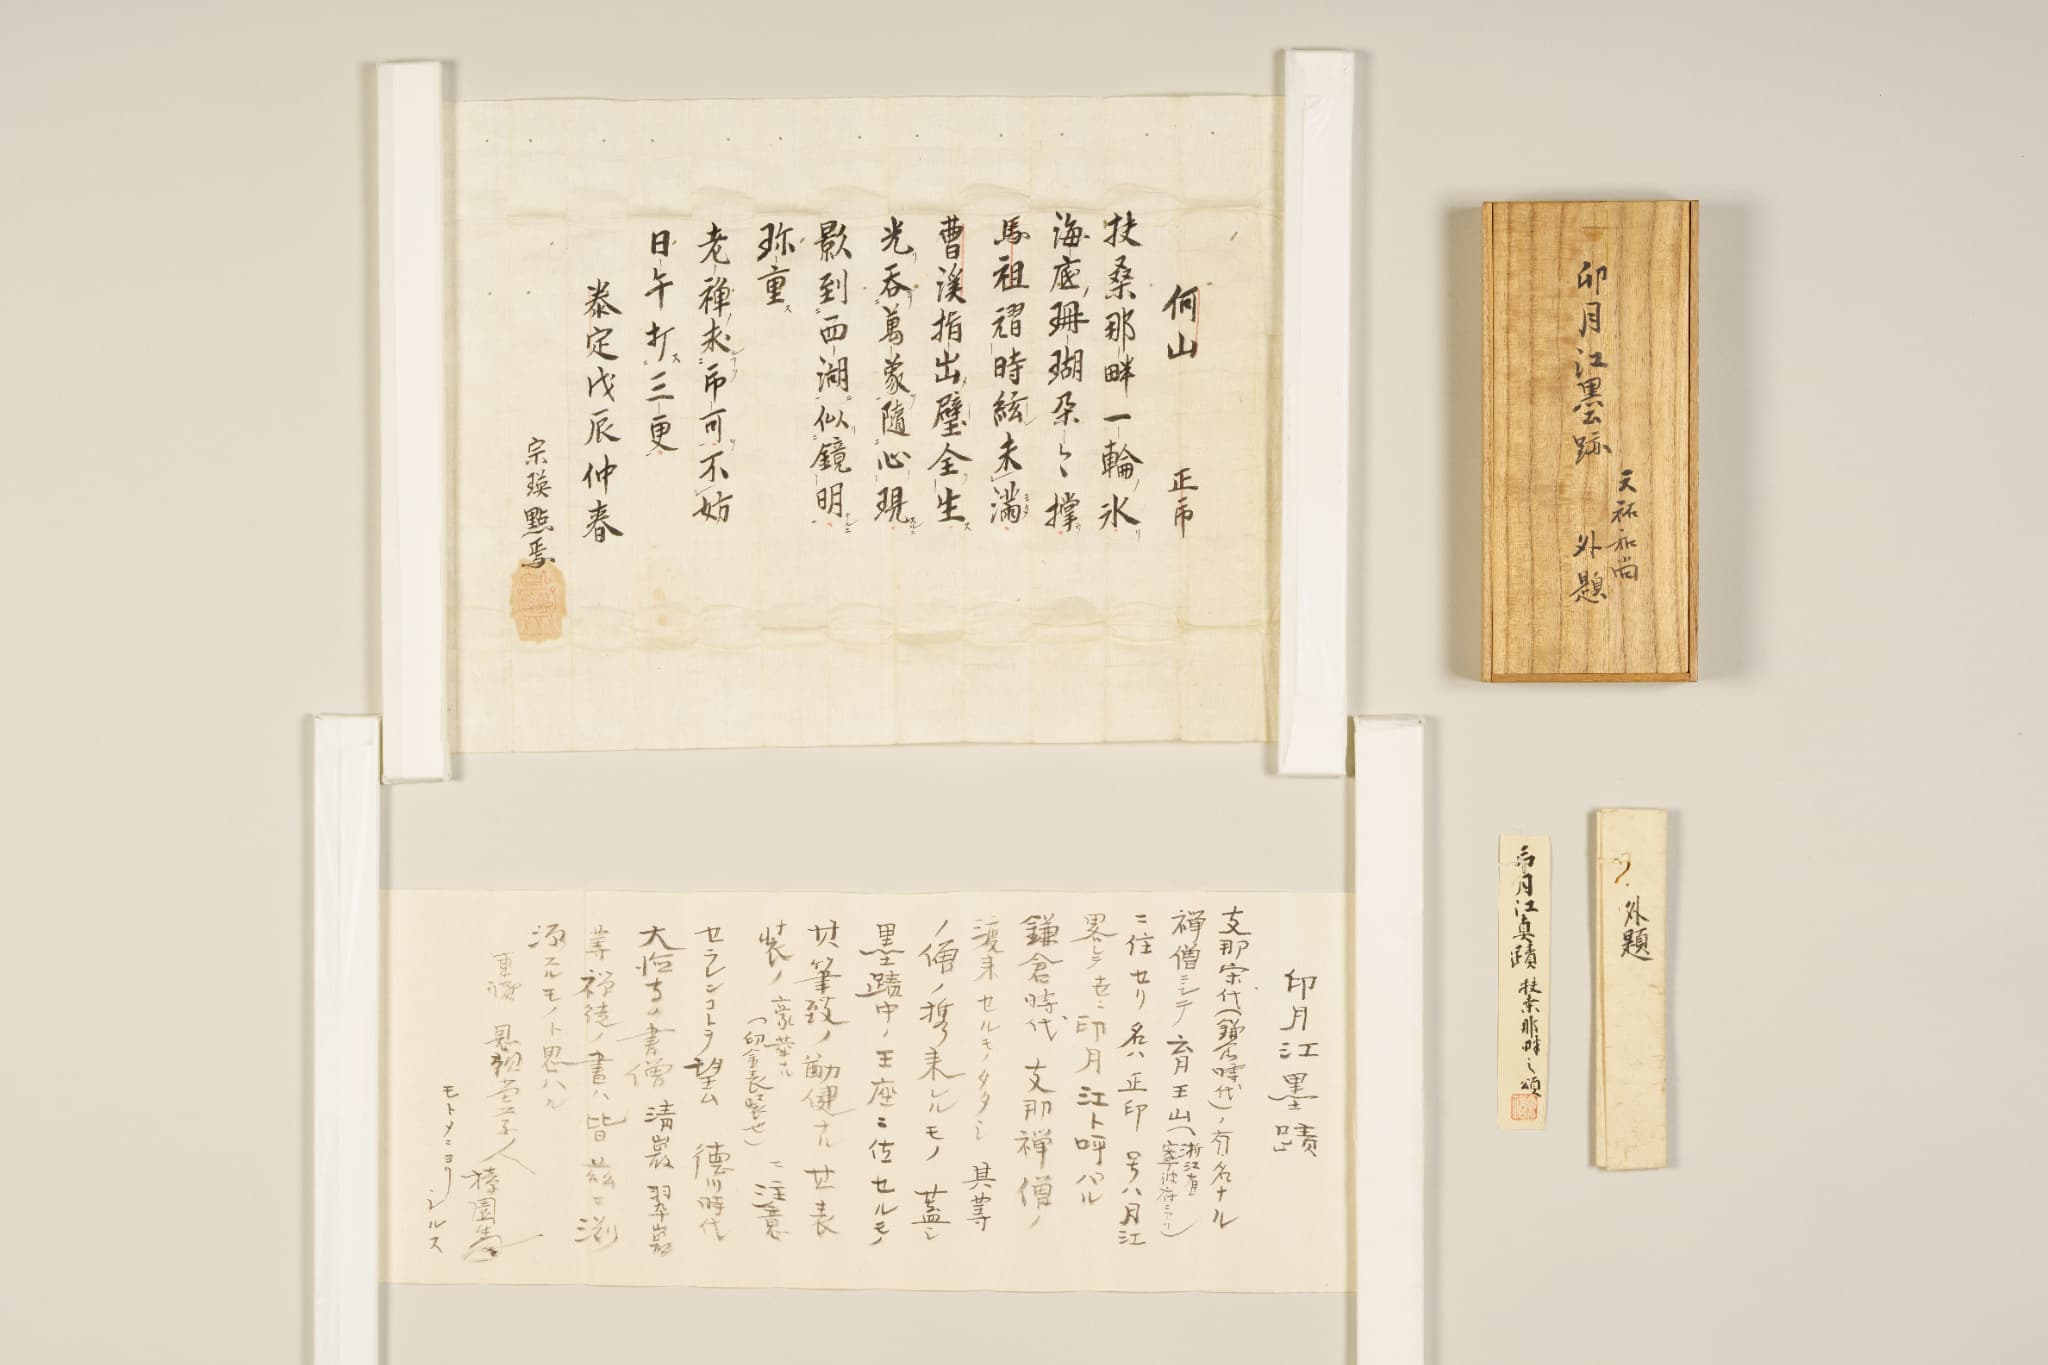 何山 正印
扶桑那畔一輪氷
海底珊瑚朶〻撑
馬祖翫時絃未満
曹溪指出璧全生
光呑萬象隨心現
影到西湖似鏡明
珎重
老禅未印可不妨
日午打三更
泰定戊辰仲春
宗瑛點焉
印月江墨蹟
支那宋代(鎌倉時代)ノ有名ナル
禅僧ニシテ育王山(浙江省寧波府ニアリ)
ニ住セリ名ハ正印号ハ月江
畧シテ世ニ印月江ト呼ハル
鎌倉時代支那禅僧ノ
渡来セルモノタタシ其等
ノ僧ノ携来レルモノ蓋シ
墨蹟中ノ王座ニ位セルモノ
其筆致ノ勁健ナル其表
装ノ豪華ナル(印金表装也)ニ注意
セランコトヲ望ム徳川時代
大徳寺ノ書僧清巌翠巌
等禅徒ノ書ハ皆茲ニ淵
源スルモノト思ハル
モトメニヨリシルス
印月江墨跡
天祐和尚
外題
印月江真蹟 扶桑那畔之頌
外題